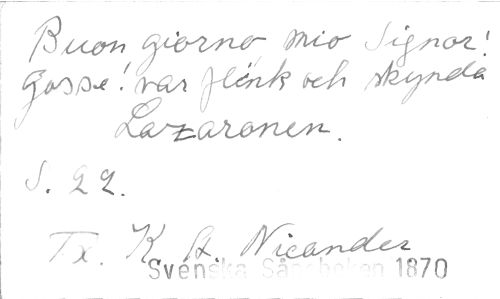 Buon giorno mio Signor!
Gosse! var flink och skynda
Lazaronen.
S. 22.
Tx. K A Nicander
Svenska Sångboken 1870